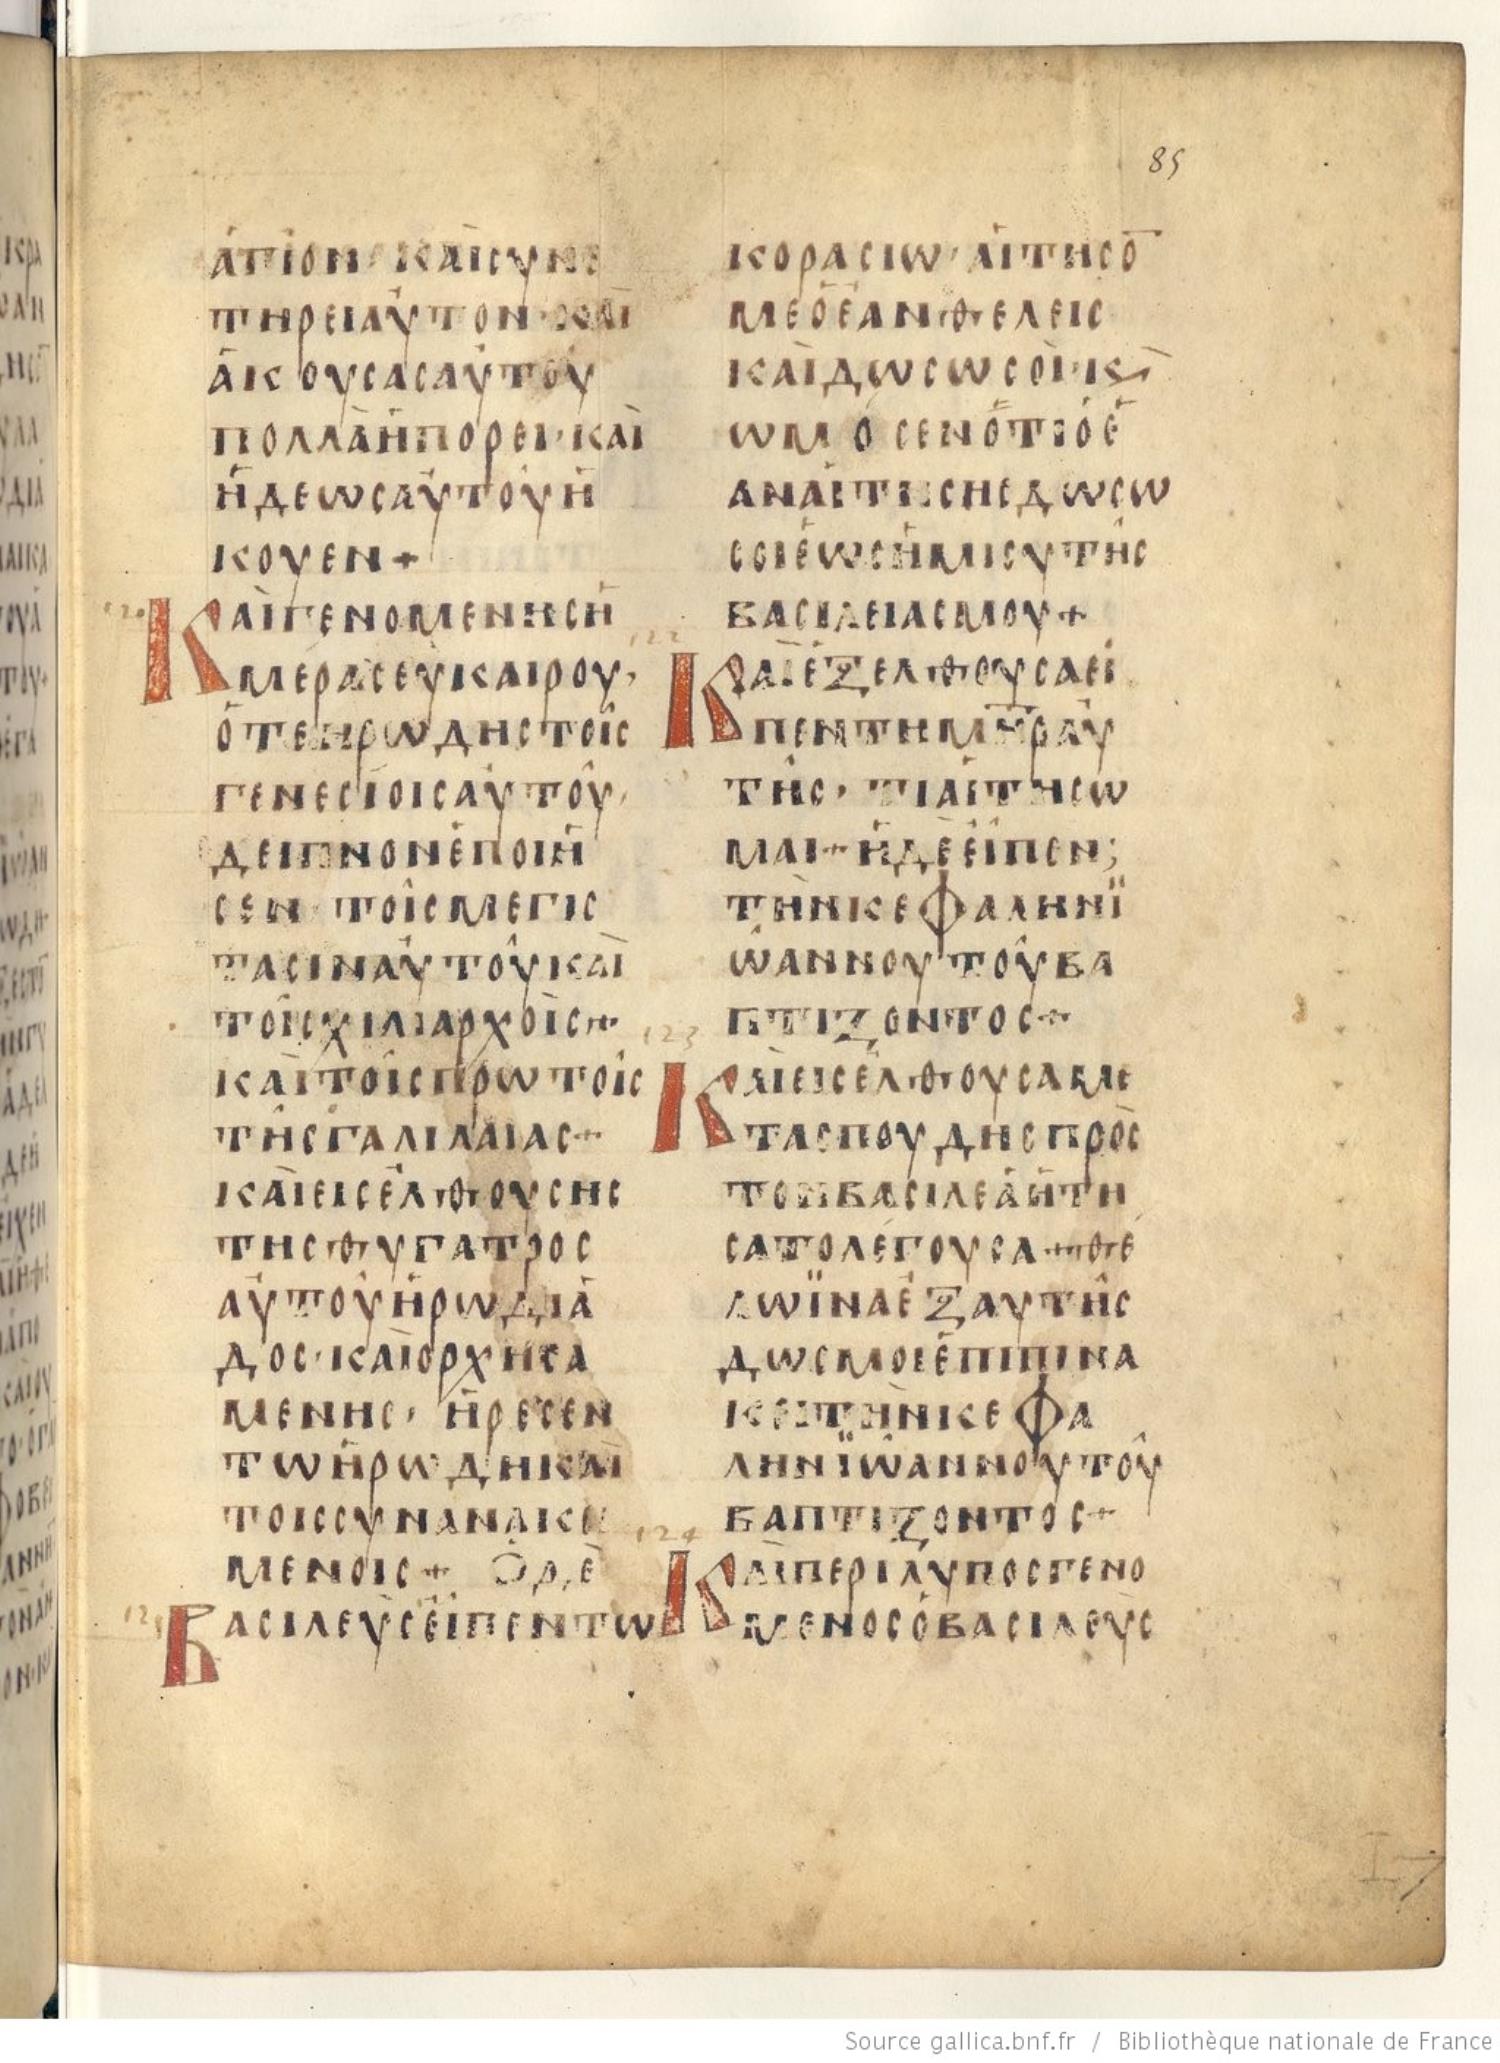 85
ἅγιον· καὶ συνε
τήρει αὐτὸν· καὶ
ἀκούσας αὐτοῦ
πολλὰ ἠπόρει· καὶ
ἡδέως αὐτοῦ ἤ
κουεν+
120
Καὶ γενομένης ἡ
μέρας εὐκαίρου,
ὅτε ηρωδης τοῖς
γενεσίοις αὐτοῦ,
δειπνον ἐποίη
σεν· τοῖς μεγις
τασιν αὐτοῦ καὶ
τοῖς χιλιάρχοις+
καὶ τοῖς πρώτοις
τῆς γαλιλαίας+
καὶ εισελθούσης
της θυγατρος
αὐτοῦ ἡρωδιά
δος· καὶ ορχησα
μενης, ἤρεσεν
τω ἡρωδη καὶ
τοις συνανακει
μενοις+ Ὁ δὲ
121
Βασιλεὺς εἶπεν τω
κορασίω· αἴτησό
με ὃ ἐὰν θελεις
καὶ δώσω σοὶ· κ
ὤμοσεν ὅτι ὃ ἐ
αν αἰτησης δώσω
σοι ἕως ἡμισυ τῆς
βασιλειας μου+
122
Καὶ ἐξελθουσα εἶ
πεν τη μηρ αὐ
τῆς· τι αἰτησω
μαι+ ἡ δὲ εἶπεν;
τὴν κεφαλην ϊ
ωἀννου τοῦ βα
πτιζοντος+
123
Καὶ εισελθουσα με
τα σπουδης πρὸς
τον βασιλεα ἠτη
σατο λέγουσα+ θέ
λω ϊνα ἐξαυτῆς
δως μοι ἐπι πινα
κει τὴν κεφα
λην ϊωἀννου τοῦ
βαπτιζοντος+
124
Καὶ περιλυπος γενο
μενος ὁ βασιλεὺς
Source gallica.bnf.fr / Bibliothèque nationale de France